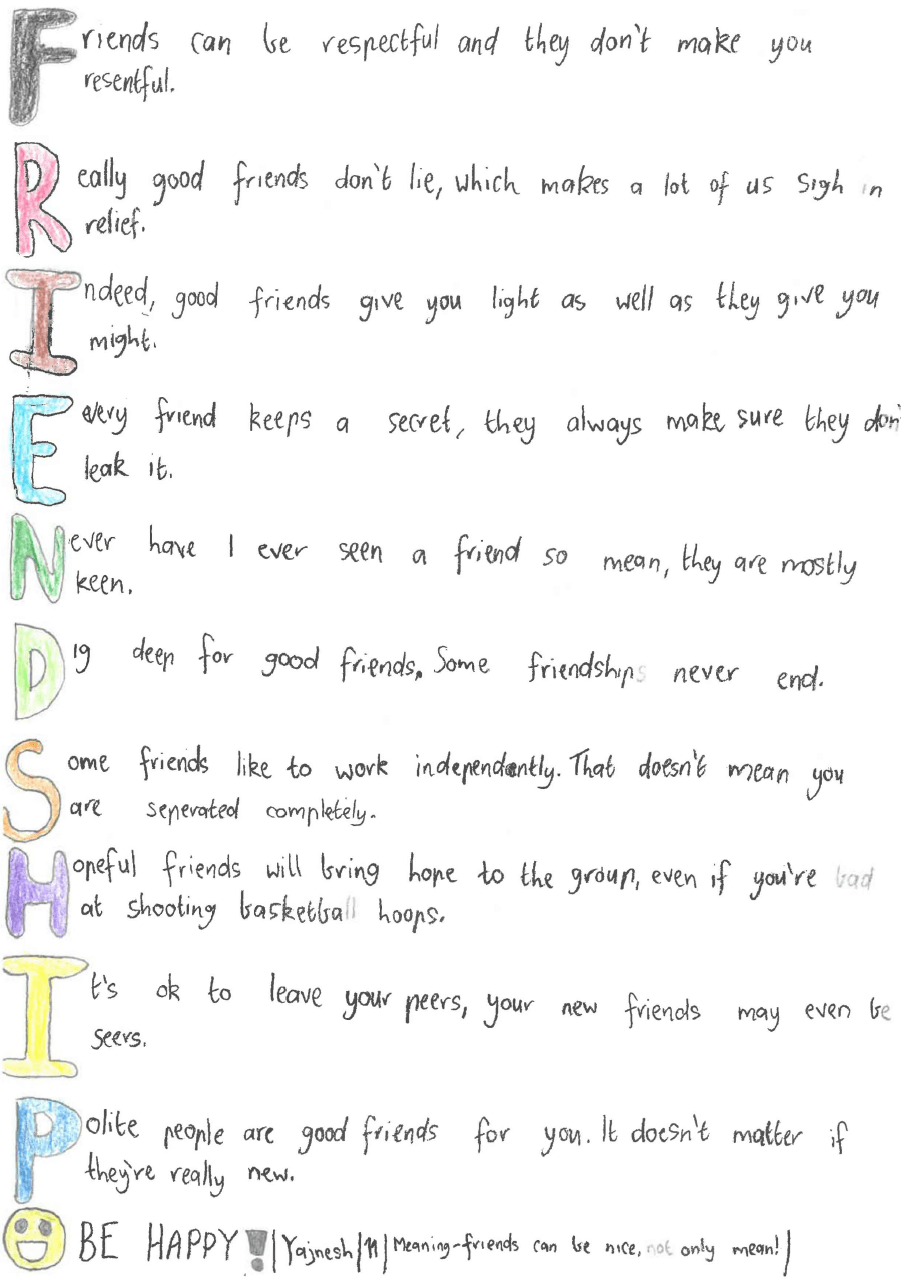 Friends can be respectful and they don't make you
resentful.
Really good friends don't lie, which makes a lot of us sigh in
relief.
Indeed, good friends give you light as well as they give you
might.
Every friend keeps a secret, they always make sure they don'
leak it.
Never have I ever seen a friend so mean, they are mostly
keen.
Dig deep for good friends. Some friendships never end.
Some friends like to work independently. That doesn't mean you
are seperated completely.
Hopeful friends will bring hope to the group, even if you're bad
at shooting basketball hoops.
It's ok to leave your peers, your new friends may even be
seers.
Polite people are good friends for you. It doesn't matter if
they're really new.
BE HAPPY! | Yajnesh | 11 | Meaning-friends can be nice, not only mean! |